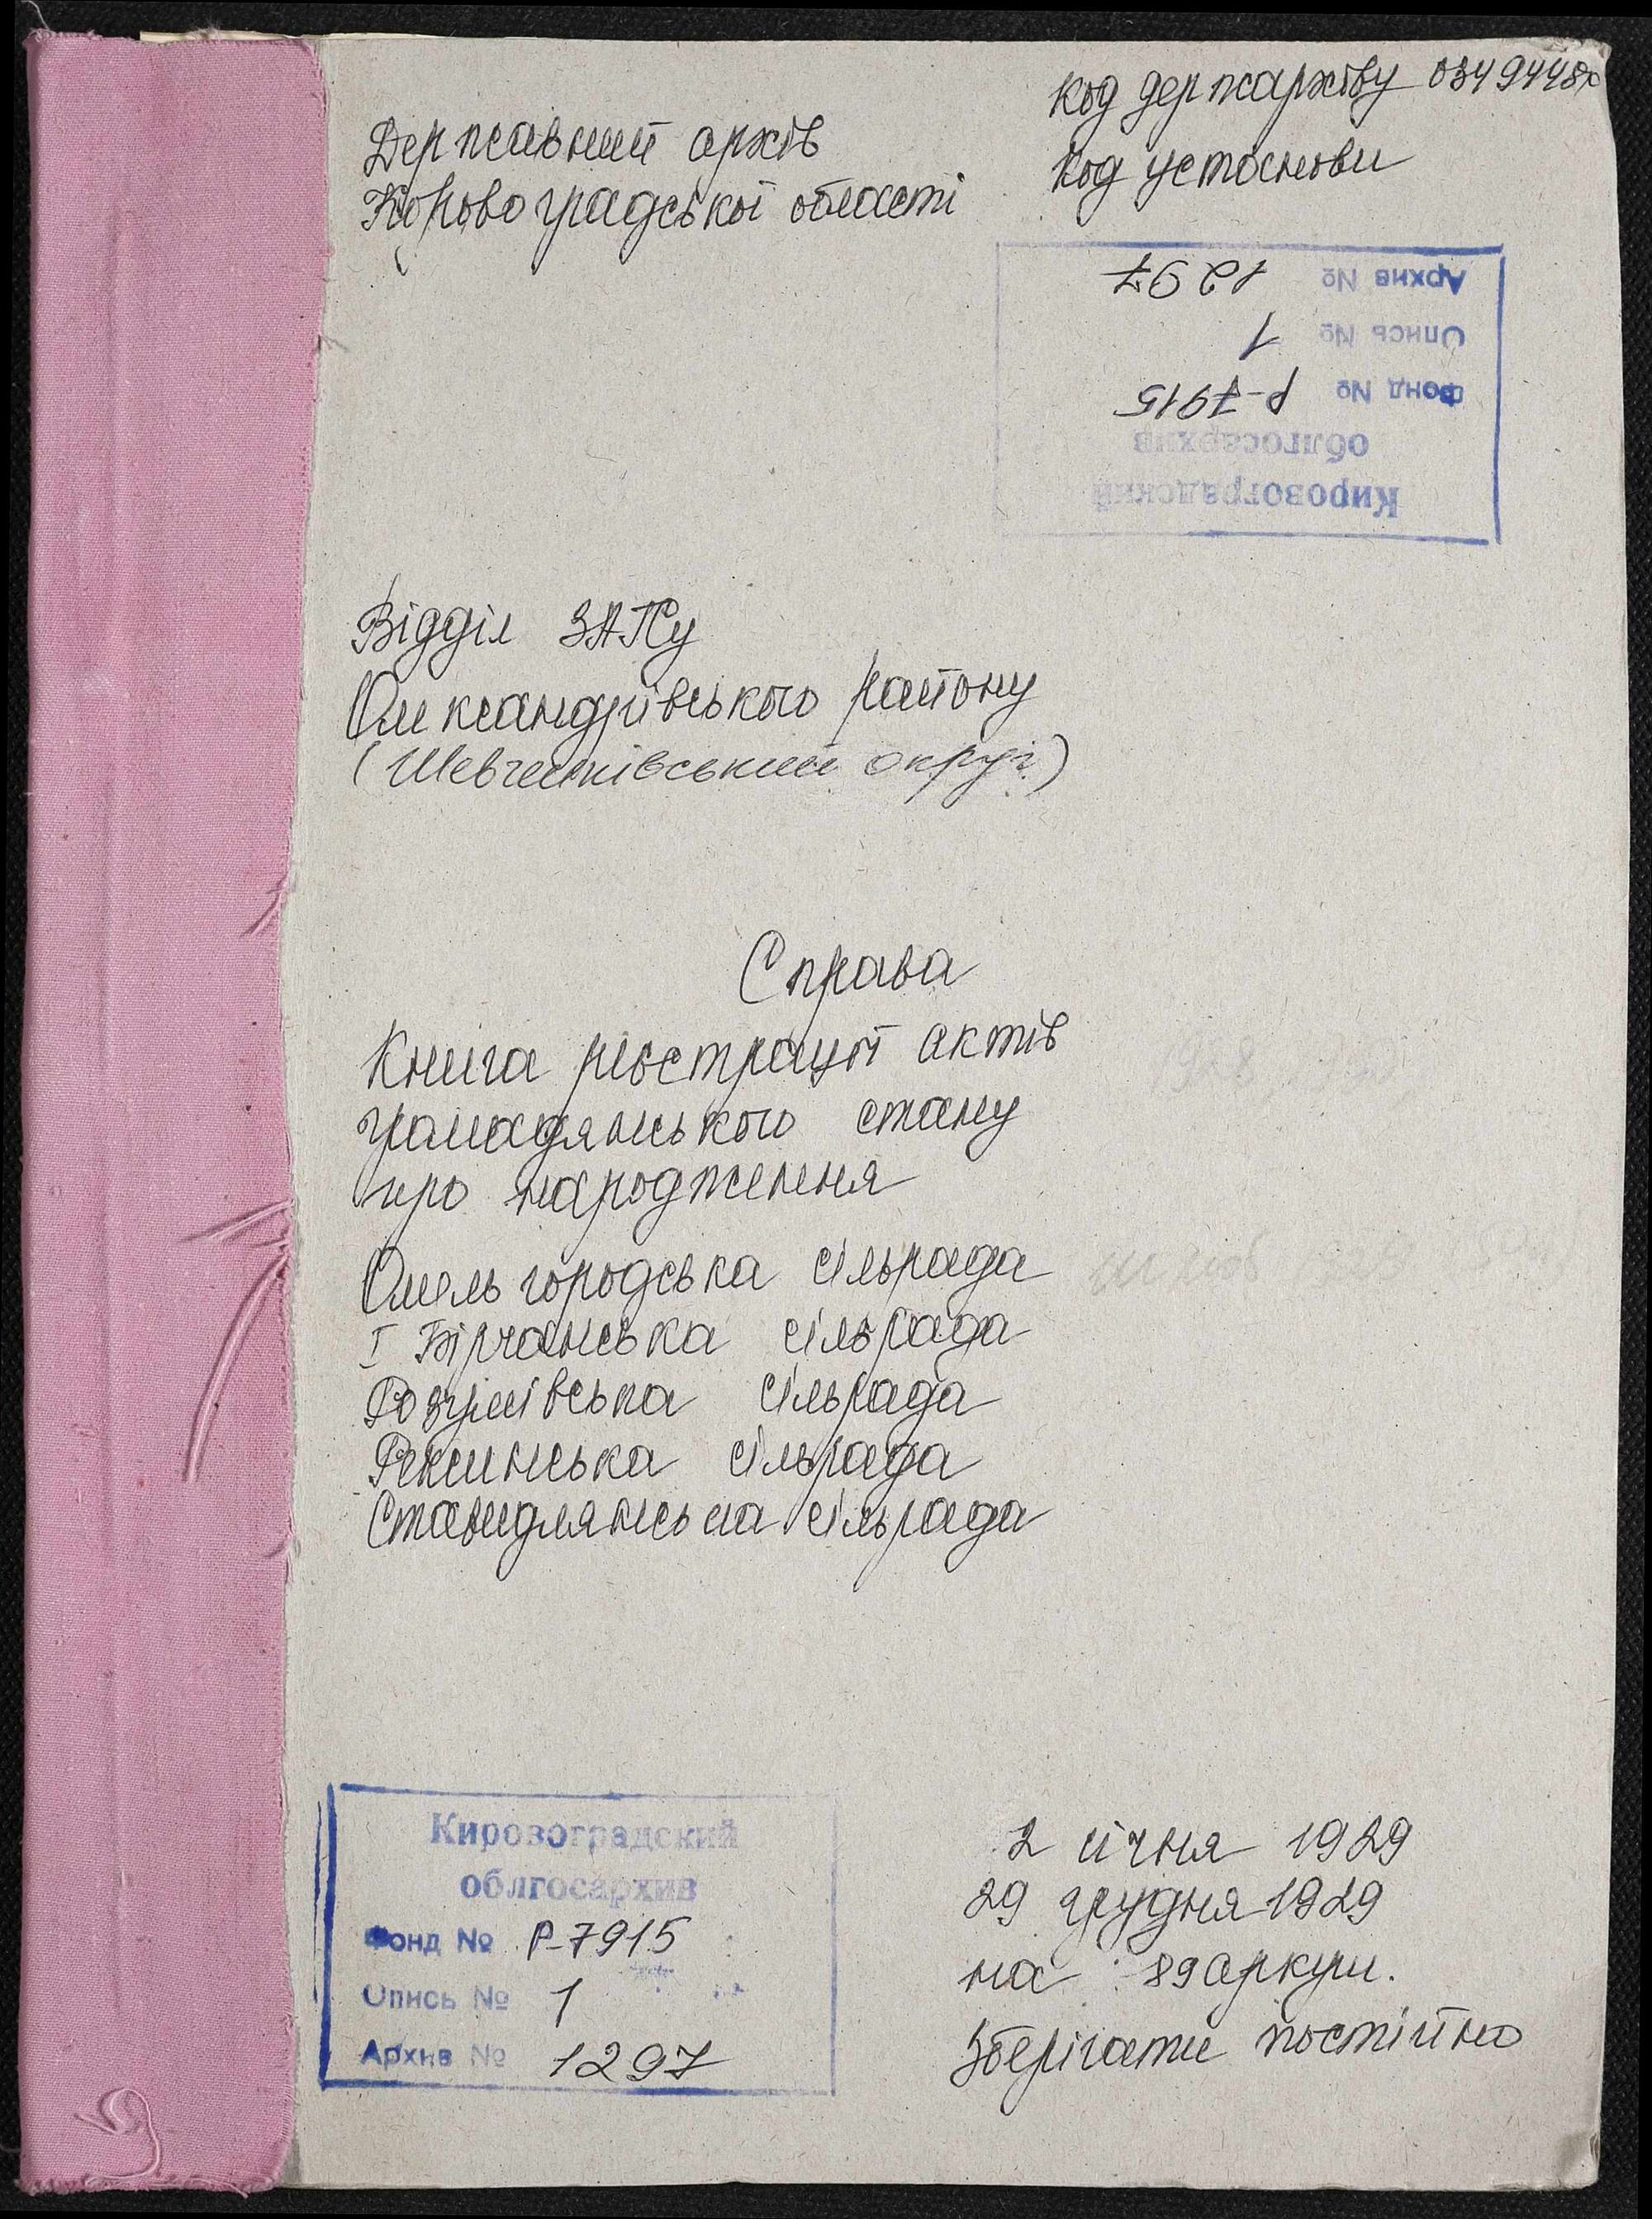 код держархіву 03494480
код установи
Державний архів
Кіровоградської області
Кировоградский
облгосархив
Фонд № Р-7915
Опись № 1
Архив № 1297
Відділ ЗАГСу
Олександрівського району
(Шевченківський округ)
Справа
Книга реєстрації актів
громадянського стану
про народження
Омельгородська сільрада
І Бірчанська сільрада
Розумівська сільрада
Рекшинська сільрада
Ставидлянська сільрада
Кировоградский
облгосархив
Фонд № Р-7915
Опись № 1
Архив № 1297
2 січня 1929
29 грудня 1929
на 89 аркуш.
Зберігати постійно